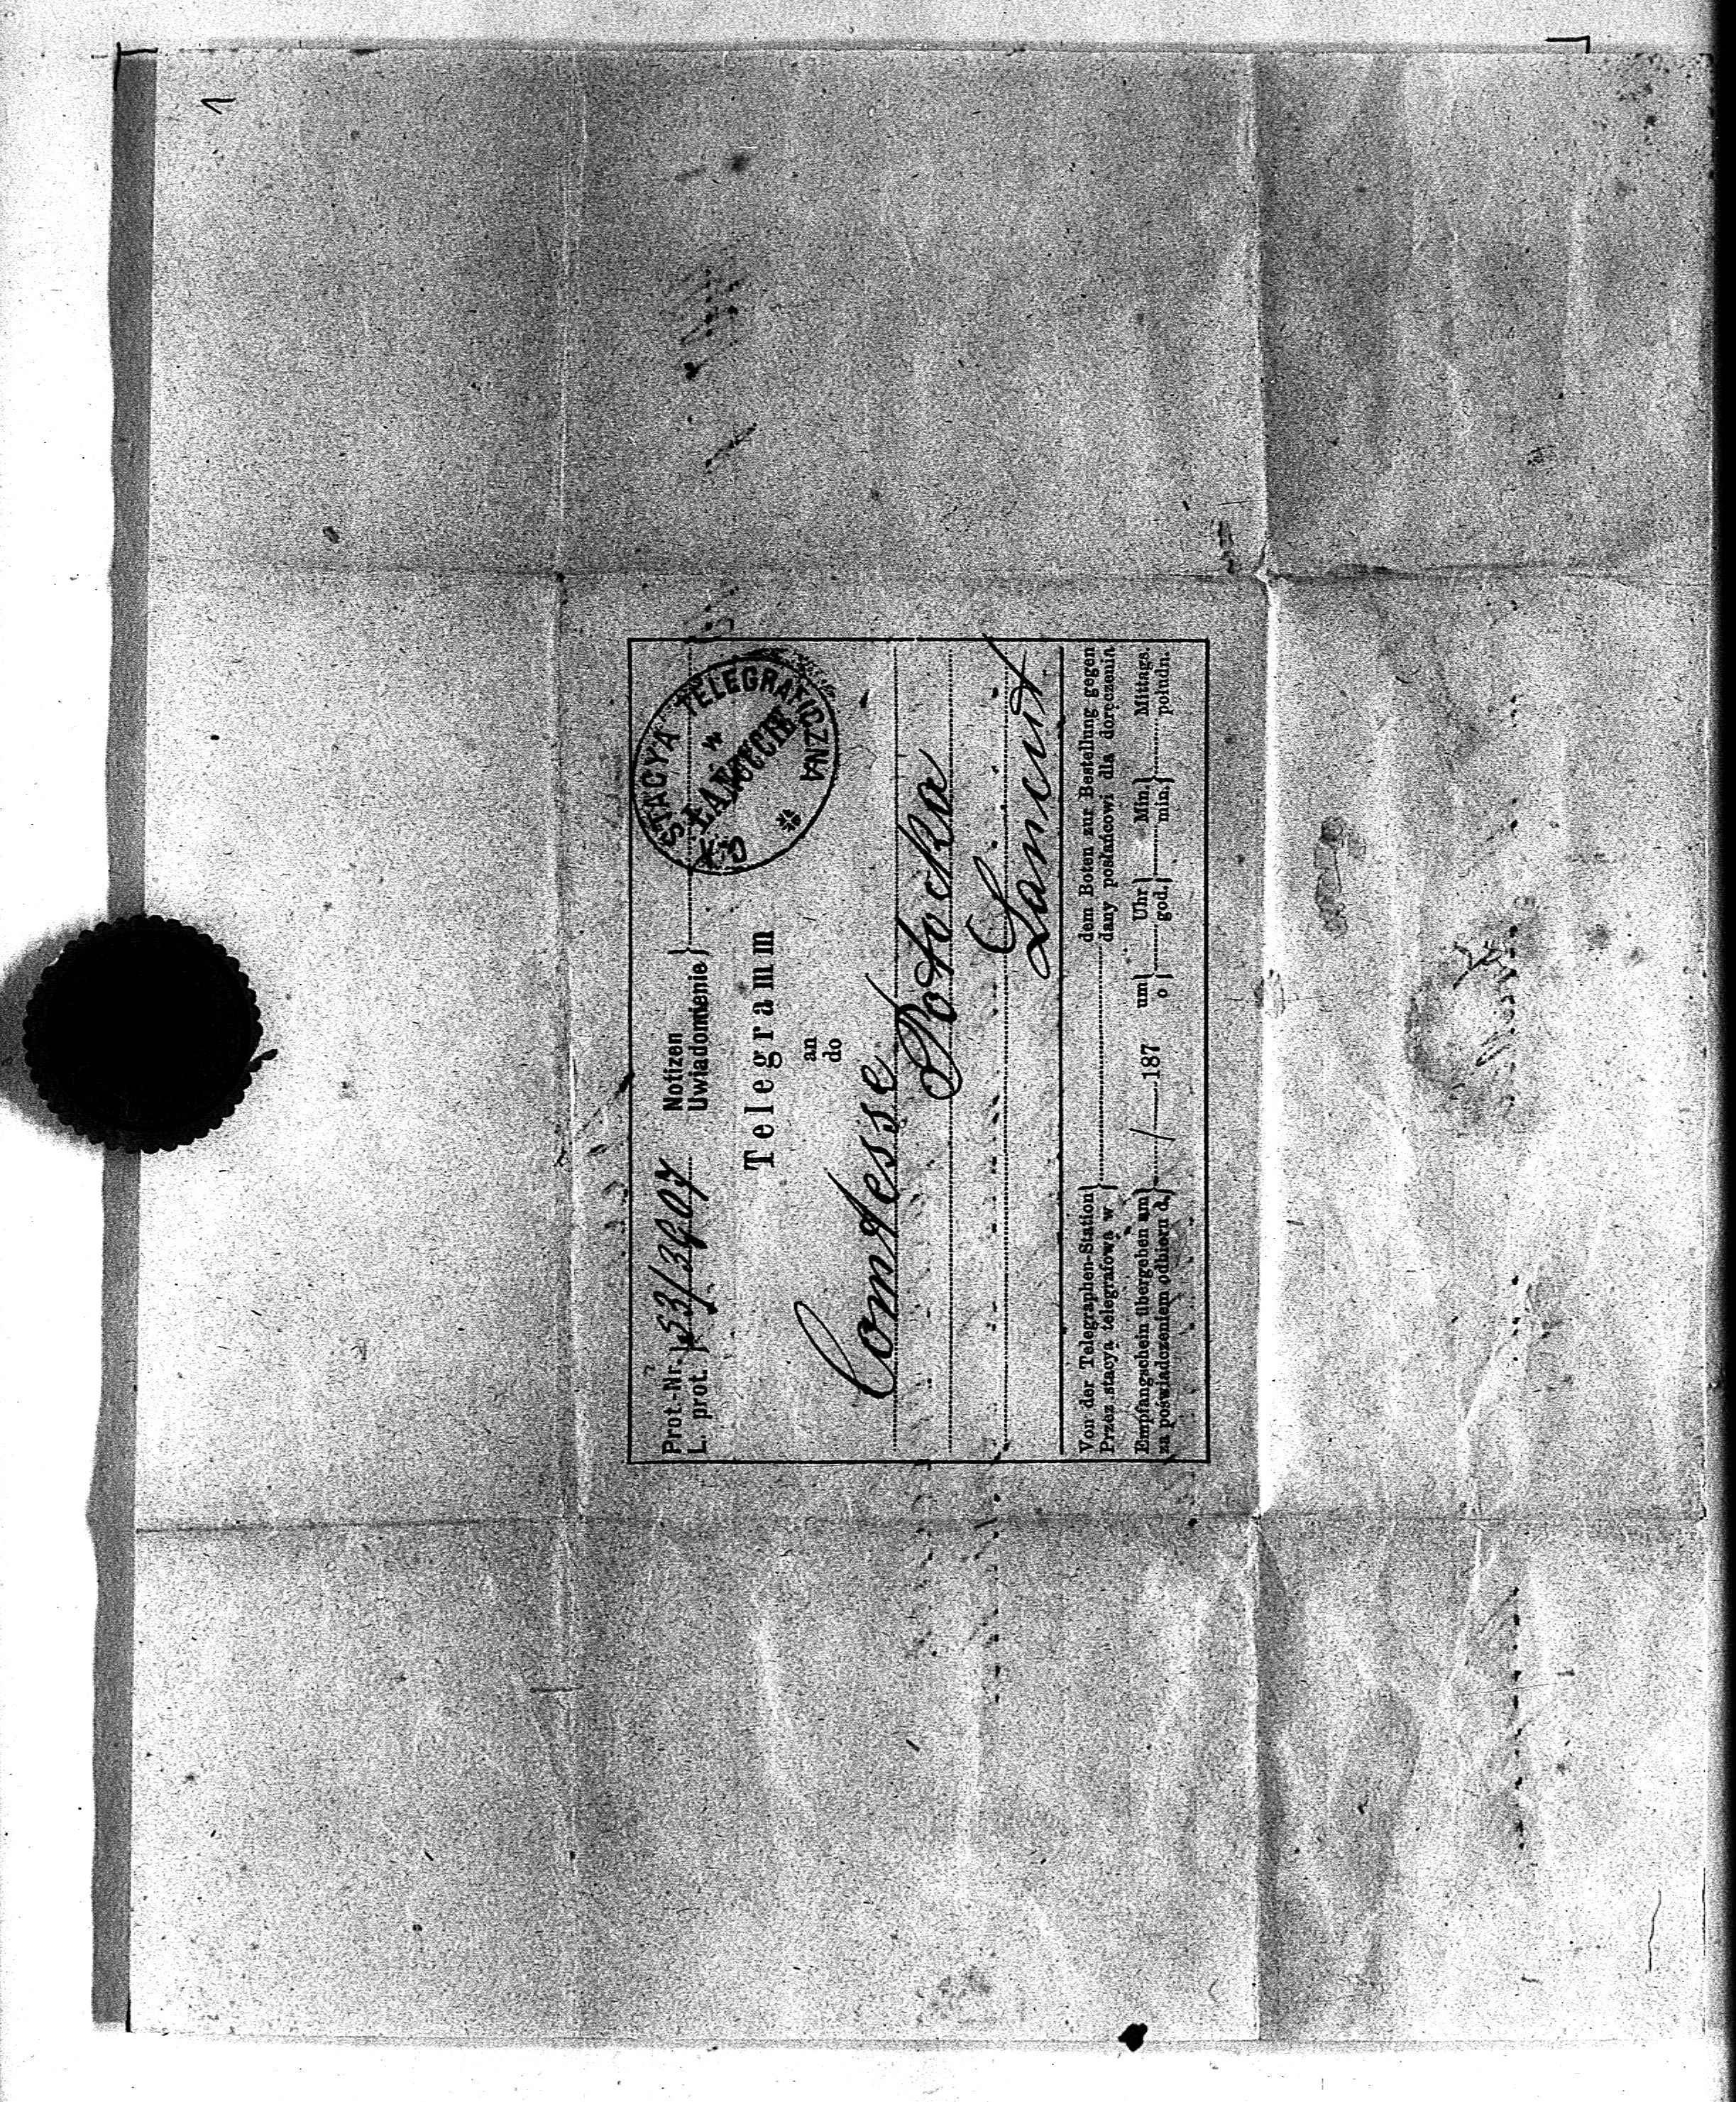 1
Prot.-Nr. L. prot. } 53/3907 Notizen Uwiadomienie }
C. K. STACYA TELEGRAFICZNA
w
ŁAŃCUCIE
Telegramm
an
do
Comtesse
Potocka
Lancut
Von der Telegraphen-Station } dem Boten zur Bestellung gegen
Przez stacyą telegrafową w } dany posłańcowi dla doręczenia
Empfangschein übergeben am } / 187 um } Uhr } Min. } Mittags.
za poświadczeniem odbioru d. } o } god. } min. } południ.